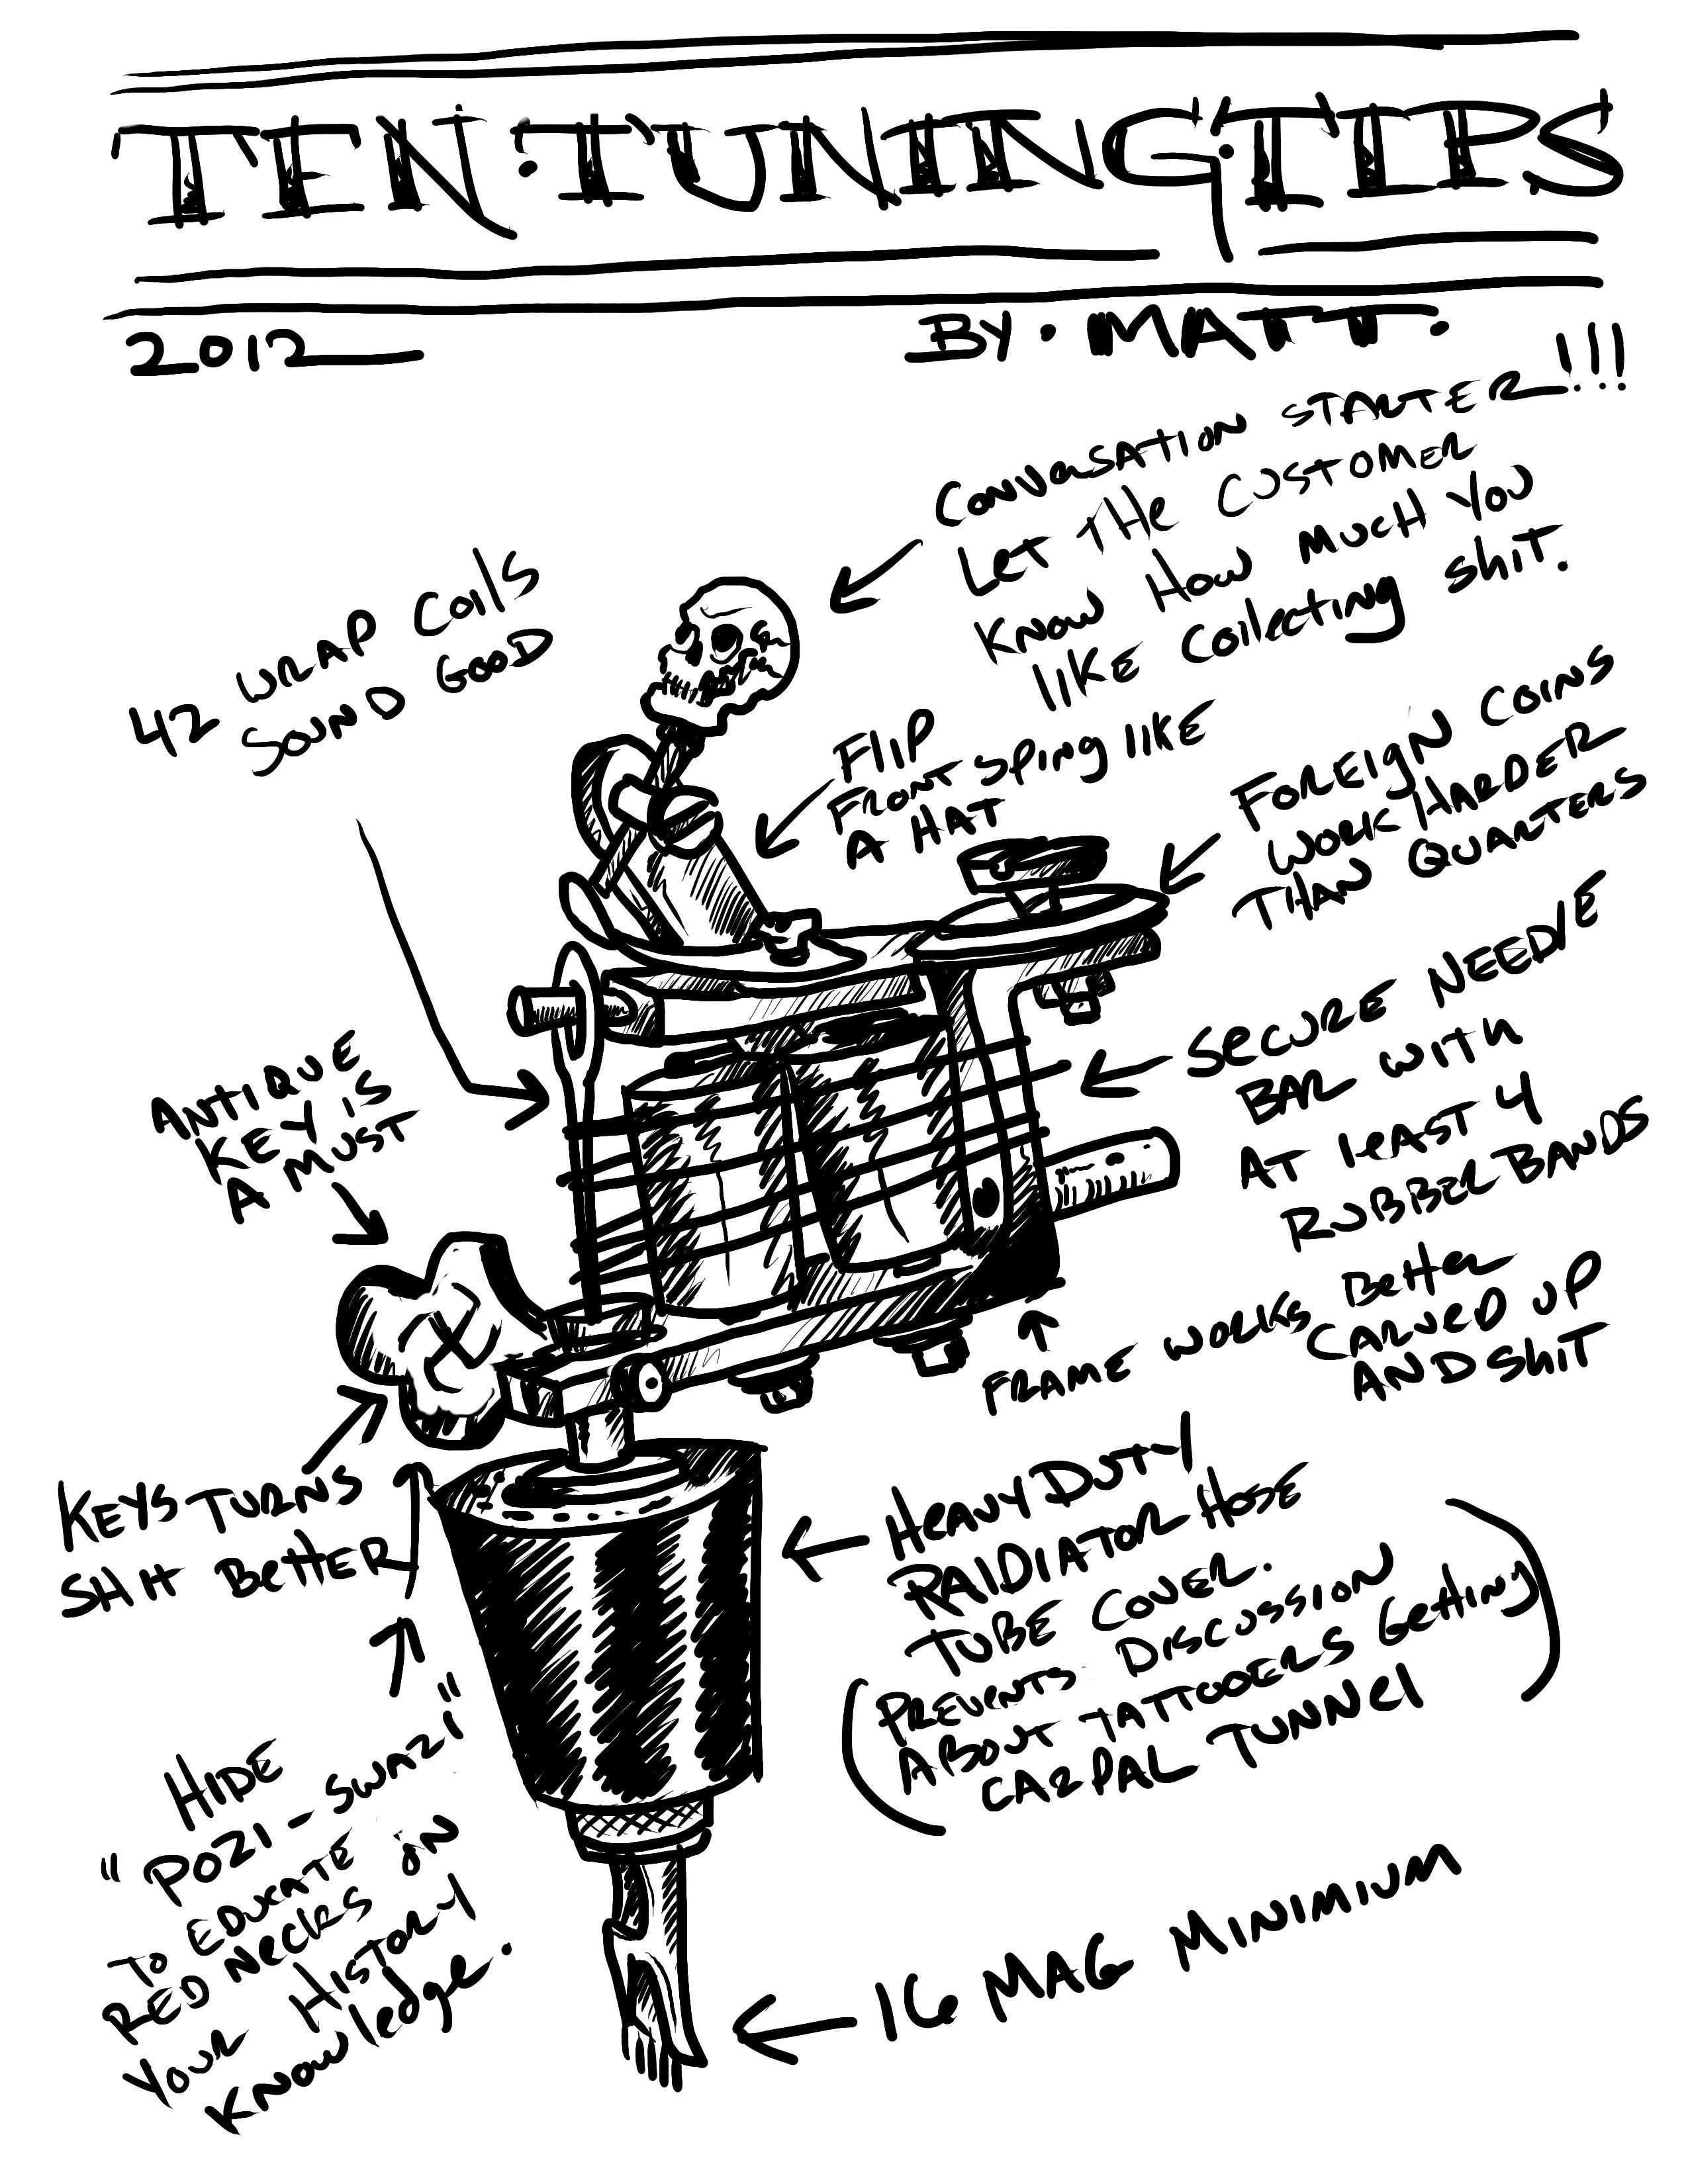 TEN·TUNING·TIPS
2012
BY·MATT·
CONVERSATION STARTER!!!
LET THE CUSTOMER
KNOW HOW MUCH YOU
LIKE COllECTING SHIT.
42 WRAP COILS
SOUND GOOD
FLIP
FRONT SPING LIKE
A HAT
FOREIGN COINS
WORK HARDER
THAN QUARTERS
SECURE NEEDLE
BAR WITH
AT LEAST 4
RUBBER BANDS
ANTIQUE
KEY IS
A MUST
FRAME WORKS BETTER
CARVED UP
AND SHIT
KEYS TURNS
SHIT BETTER
HEAVY DUTY
RAIDIATOR HOSE
TUBE COVER.
(PREVENTS DISCUSSION
ABOUT TATTOOERS GETTING
CARPAL TUNNEL)
HIDE
"POZI-SWAZI"
TO EDUCATE
RED NECKS ON
YOUR HISTORY
KNOWLEDGE.
16 MAG MINIMIUM